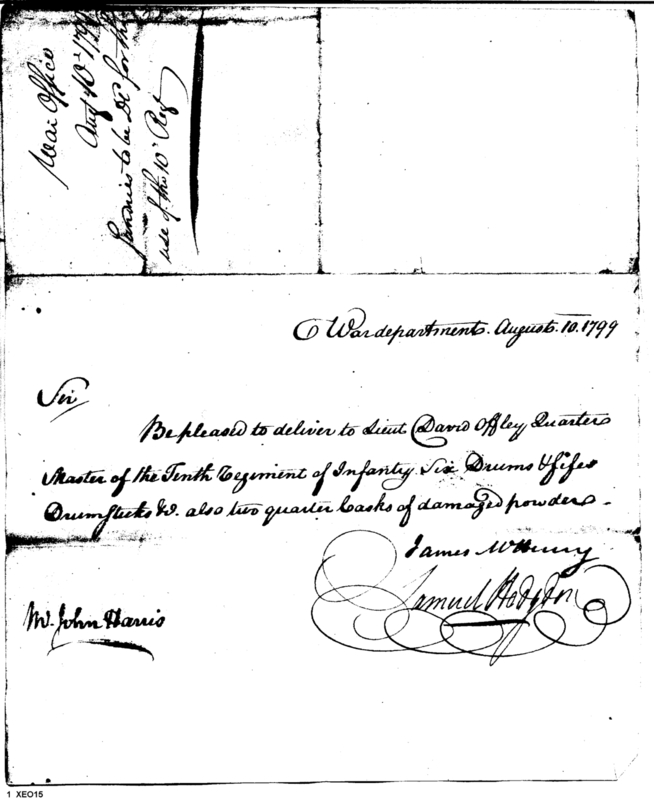 War Office
Aug 10th 1799
Sundries to be Dd for the
use of the 10th Regt
War department. August. 10. 1799
Sir
Be pleased to deliver to Lieut David Offley Quarter
Master of the Tenth Regiment of Infantry Six Drums & fifes
Drumsticks &c. also two quarter Casks of damaged powder.
James McHenry
Samuel Hodgdon
Mr. John Harris
1 XEO15